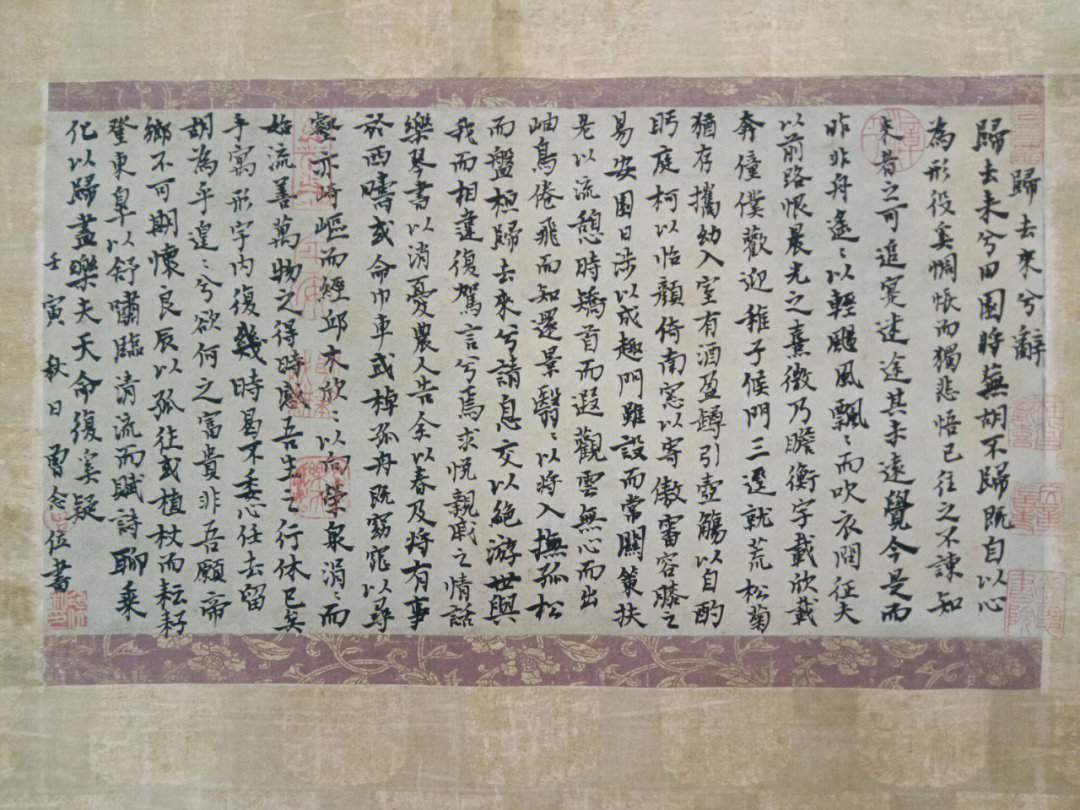 歸去來兮辭
歸去来兮田園將蕪胡不歸既自以心
為形役奚惆悵而獨悲悟已往之不諫知
來者之可追寔迷途其未遠覺今是而
昨非舟遙〻以輕颺風飄〻而吹衣問征夫
以前路恨晨光之熹微乃瞻衡宇載欣載
奔僮僕歡迎稚子候門三逕就荒松菊
猶存攜幼入室有酒盈罇引壺觴以自酌
眄庭柯以怡顏倚南窓以寄傲審容膝之
易安園日涉以成趣門雖設而常關策扶
老以流憩時矯首而遐觀雲無心而出
岫鳥倦飛而知還景翳〻以將入撫孤松
而盤桓歸去來兮請息交以絕游世與
我而相違復駕言兮焉求悅親戚之情話
樂琴書以消憂農人告余以春及將有事
於西疇或命巾車或棹孤舟既窈窕以尋
壑亦崎嶇而經邱木欣〻以向榮泉涓〻而
始流善萬物之得時感吾生之行休已矣
乎寓形宇內復幾時曷不委心任去留
胡為乎遑〻兮欲何之富貴非吾願帝
鄉不可期懷良辰以孤往或植杖而耘耔
登東皋以舒嘯臨清流而賦詩聊乘
化以歸盡樂夫天命復奚疑
壬寅秋日曾念位書